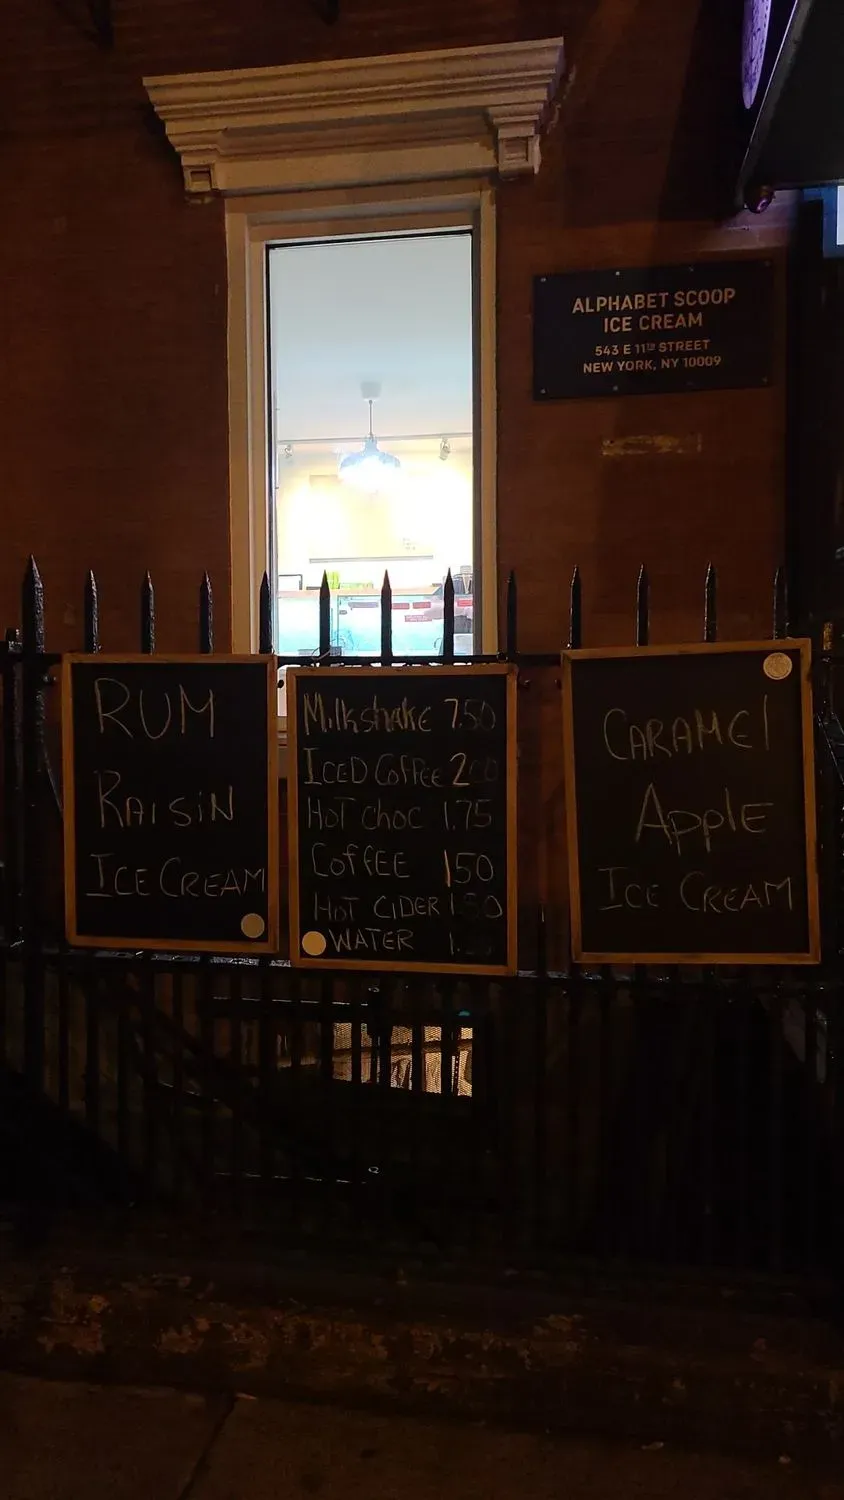 ALPHABET SCOOP
ICE CREAM
543 E 11TH STREET
NEW YORK, NY 10009
RUM
RAISIN
ICE CREAM
Milkshake 7.50
ICED COFFEE 2
HOT CHOC 1.75
COFFEE 150
HOT CIDER 1.50
WATER
CARAMEl
APPlE
ICE CREAM